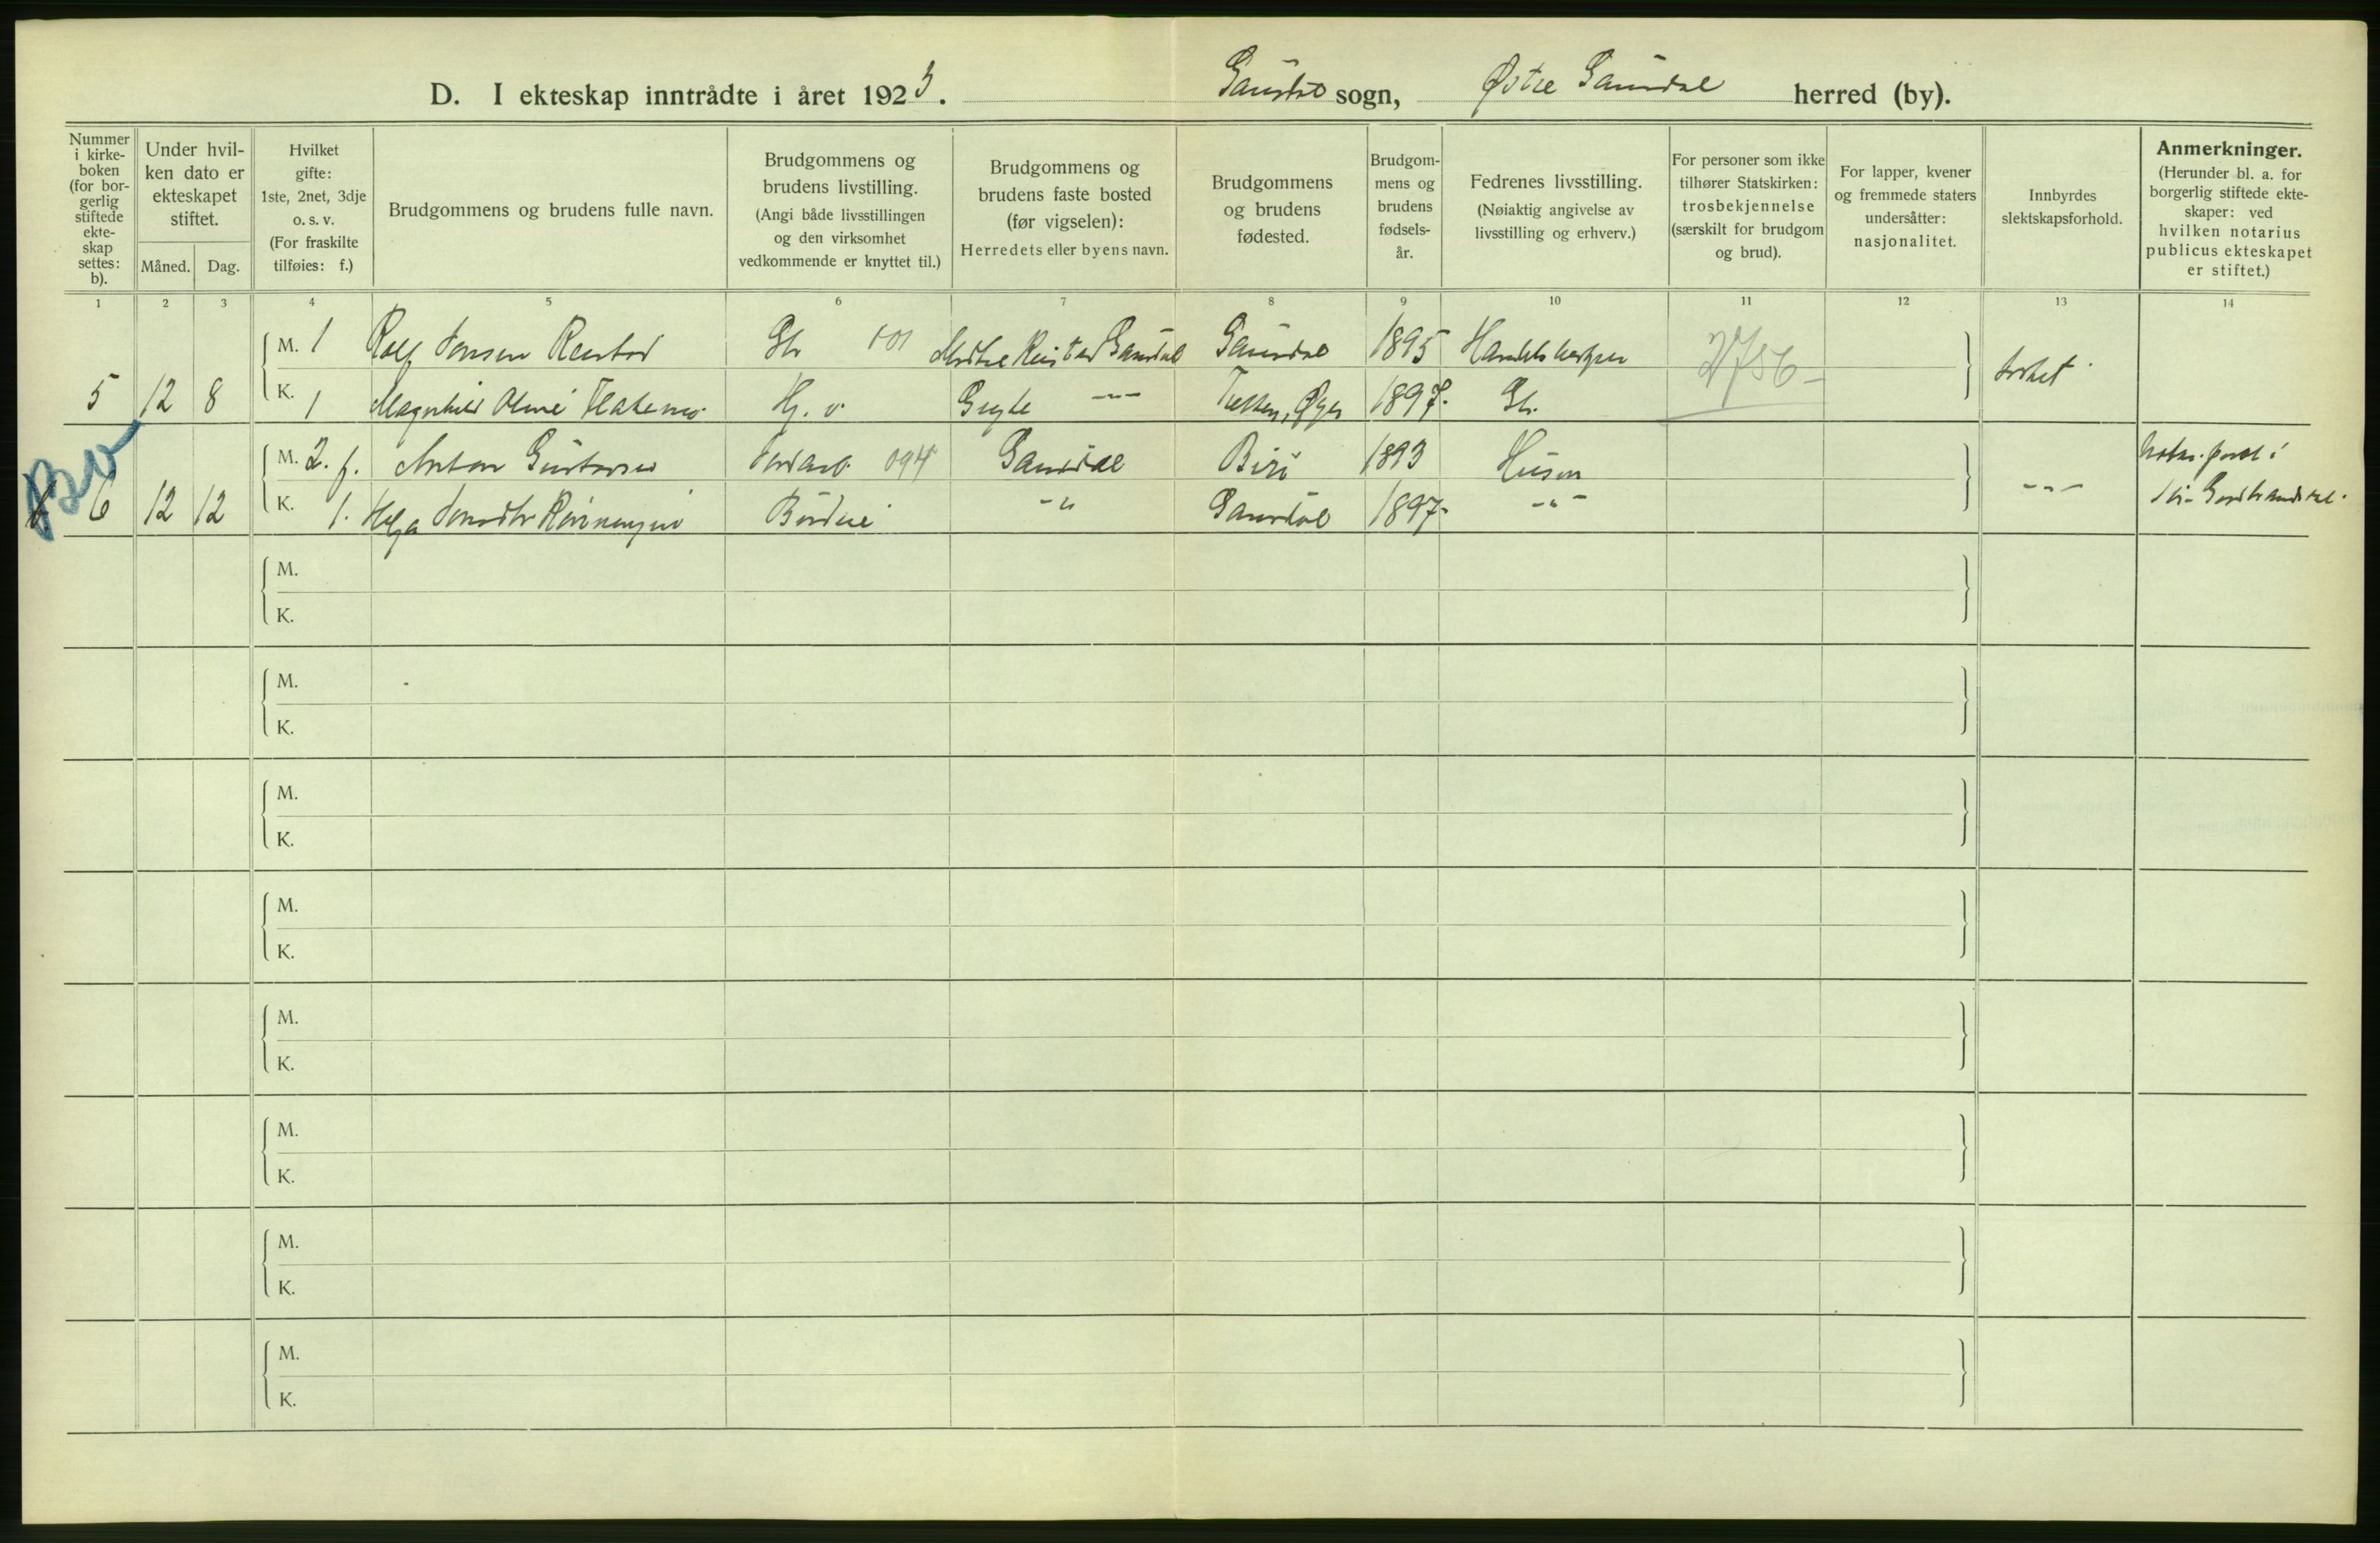 D. I ekteskap inntrådte i året 1923. Gausdal sogn, Østre Gausdal herred (by).
Nummer i kirke-boken (for bor-gerlig stiftede ekte-skap settes: b).
Under hvil-ken dato er ekteskapet stiftet.
Måned. Dag.
Hvilket gifte: 1ste, 2net, 3dje o. s. v. (For fraskilte tilføies: f.)
Brudgommens og brudens fulle navn.
Brudgommens og brudens livstilling. (Angi både livsstillingen og den virksomhet vedkommende er knyttet til.)
Brudgommens og brudens faste bosted (før vigselen): Herredets eller byens navn.
Brudgommens og brudens fødested.
Brudgom-mens og brudens fødsels-år.
Fedrenes livsstilling. (Nøiaktig angivelse av livsstilling og erhverv.)
For personer som ikke tilhører Statskirken: trosbekjennelse (særskilt for brudgom og brud).
For lapper, kvener og fremmede staters undersåtter: nasjonalitet.
Innbyrdes slektskapsforhold.
Anmerkninger. (Herunder bl. a. for borgerlig stiftede ekte-skaper: ved hvilken notarius publicus ekteskapet er stiftet.)
1 2 3 4 5 6 7 8 9 10 11 12 13 14
M. 1 Rolf Jonsen Gausdal Gausdal 1895 2756
5 12 8 K. 1 Magnhild 1897
M. 2. f. Anton Gustavsen 094 Gausdal Biri 1893 Husm
b. 6 12 12 K. 1. Helga -"- Gausdal 1897 -"-
M.
K.
M.
K.
M.
K.
M.
K.
M.
K.
M.
K.
M.
K.
M.
K.